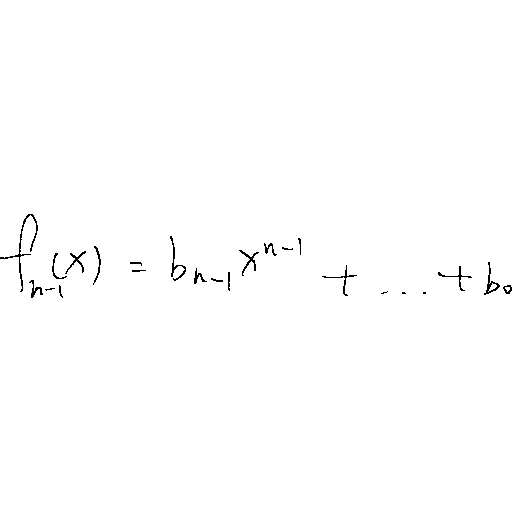 f_{n-1}(x) = b_{n-1} x^{n-1} + ... + b_0